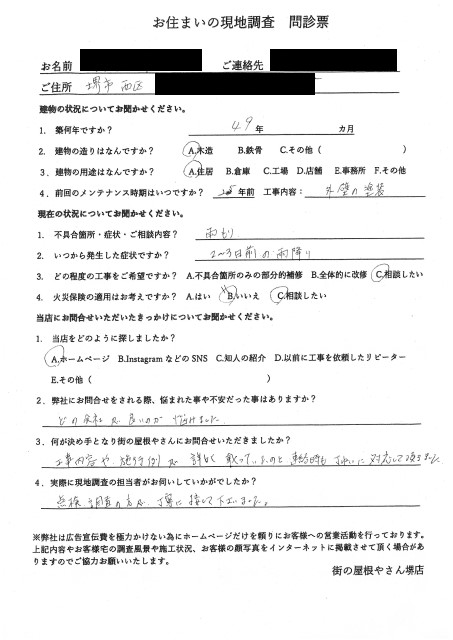 お住まいの現地調査　問診票
お名前　ご連絡先
ご住所　堺市 西区
建物の状況についてお聞かせください。
1. 築何年ですか？　49 年　カ月
2. 建物の造りはなんですか？　A.木造　B.鉄骨　C.その他（　）
3．建物の用途はなんですか？　A.住居　B.倉庫　C.工場　D.店舗　E.事務所　F.その他
4．前回のメンテナンス時期はいつですか？　年前　工事内容：　外壁の塗装
現在の状況についてお聞かせください。
1. 不具合箇所・症状・ご相談内容？　雨もり
2. いつから発生した症状ですか？　2〜3日前の雨降り
3. どの程度の工事をご希望ですか？　A.不具合箇所のみの部分的補修　B.全体的に改修　C.相談したい
4. 火災保険の適用はお考えですか？　A.はい　B.いいえ　C.相談したい
当店にお問合せいただいたきっかけについてお聞かせください。
1. 当店をどのように探しましたか？
A.ホームページ　B.InstagramなどのSNS　C.知人の紹介　D.以前に工事を依頼したリピーター
E.その他（　）
2．弊社にお問合せをされる際、悩まれた事や不安だった事はありますか？
どの会社が良いのか 悩みました
3．何が決め手となり街の屋根やさんにお問合せいただきましたか？
工事内容や、施行例が 詳しく 載っていたのと 連絡時も 丁ねいに 対応して頂きました
4．実際に現地調査の担当者がお伺いしていかがでしたか？
点検 調査の方が、丁寧に 接して下さいました。
※弊社は広告宣伝費を極力かけない為にホームページだけを頼りにお客様への営業活動を行っております。
上記内容やお客様宅の調査風景や施工状況、お客様の顔写真をインターネットに掲載させて頂く場合があ
りますのでご協力お願いいたします。
街の屋根やさん堺店